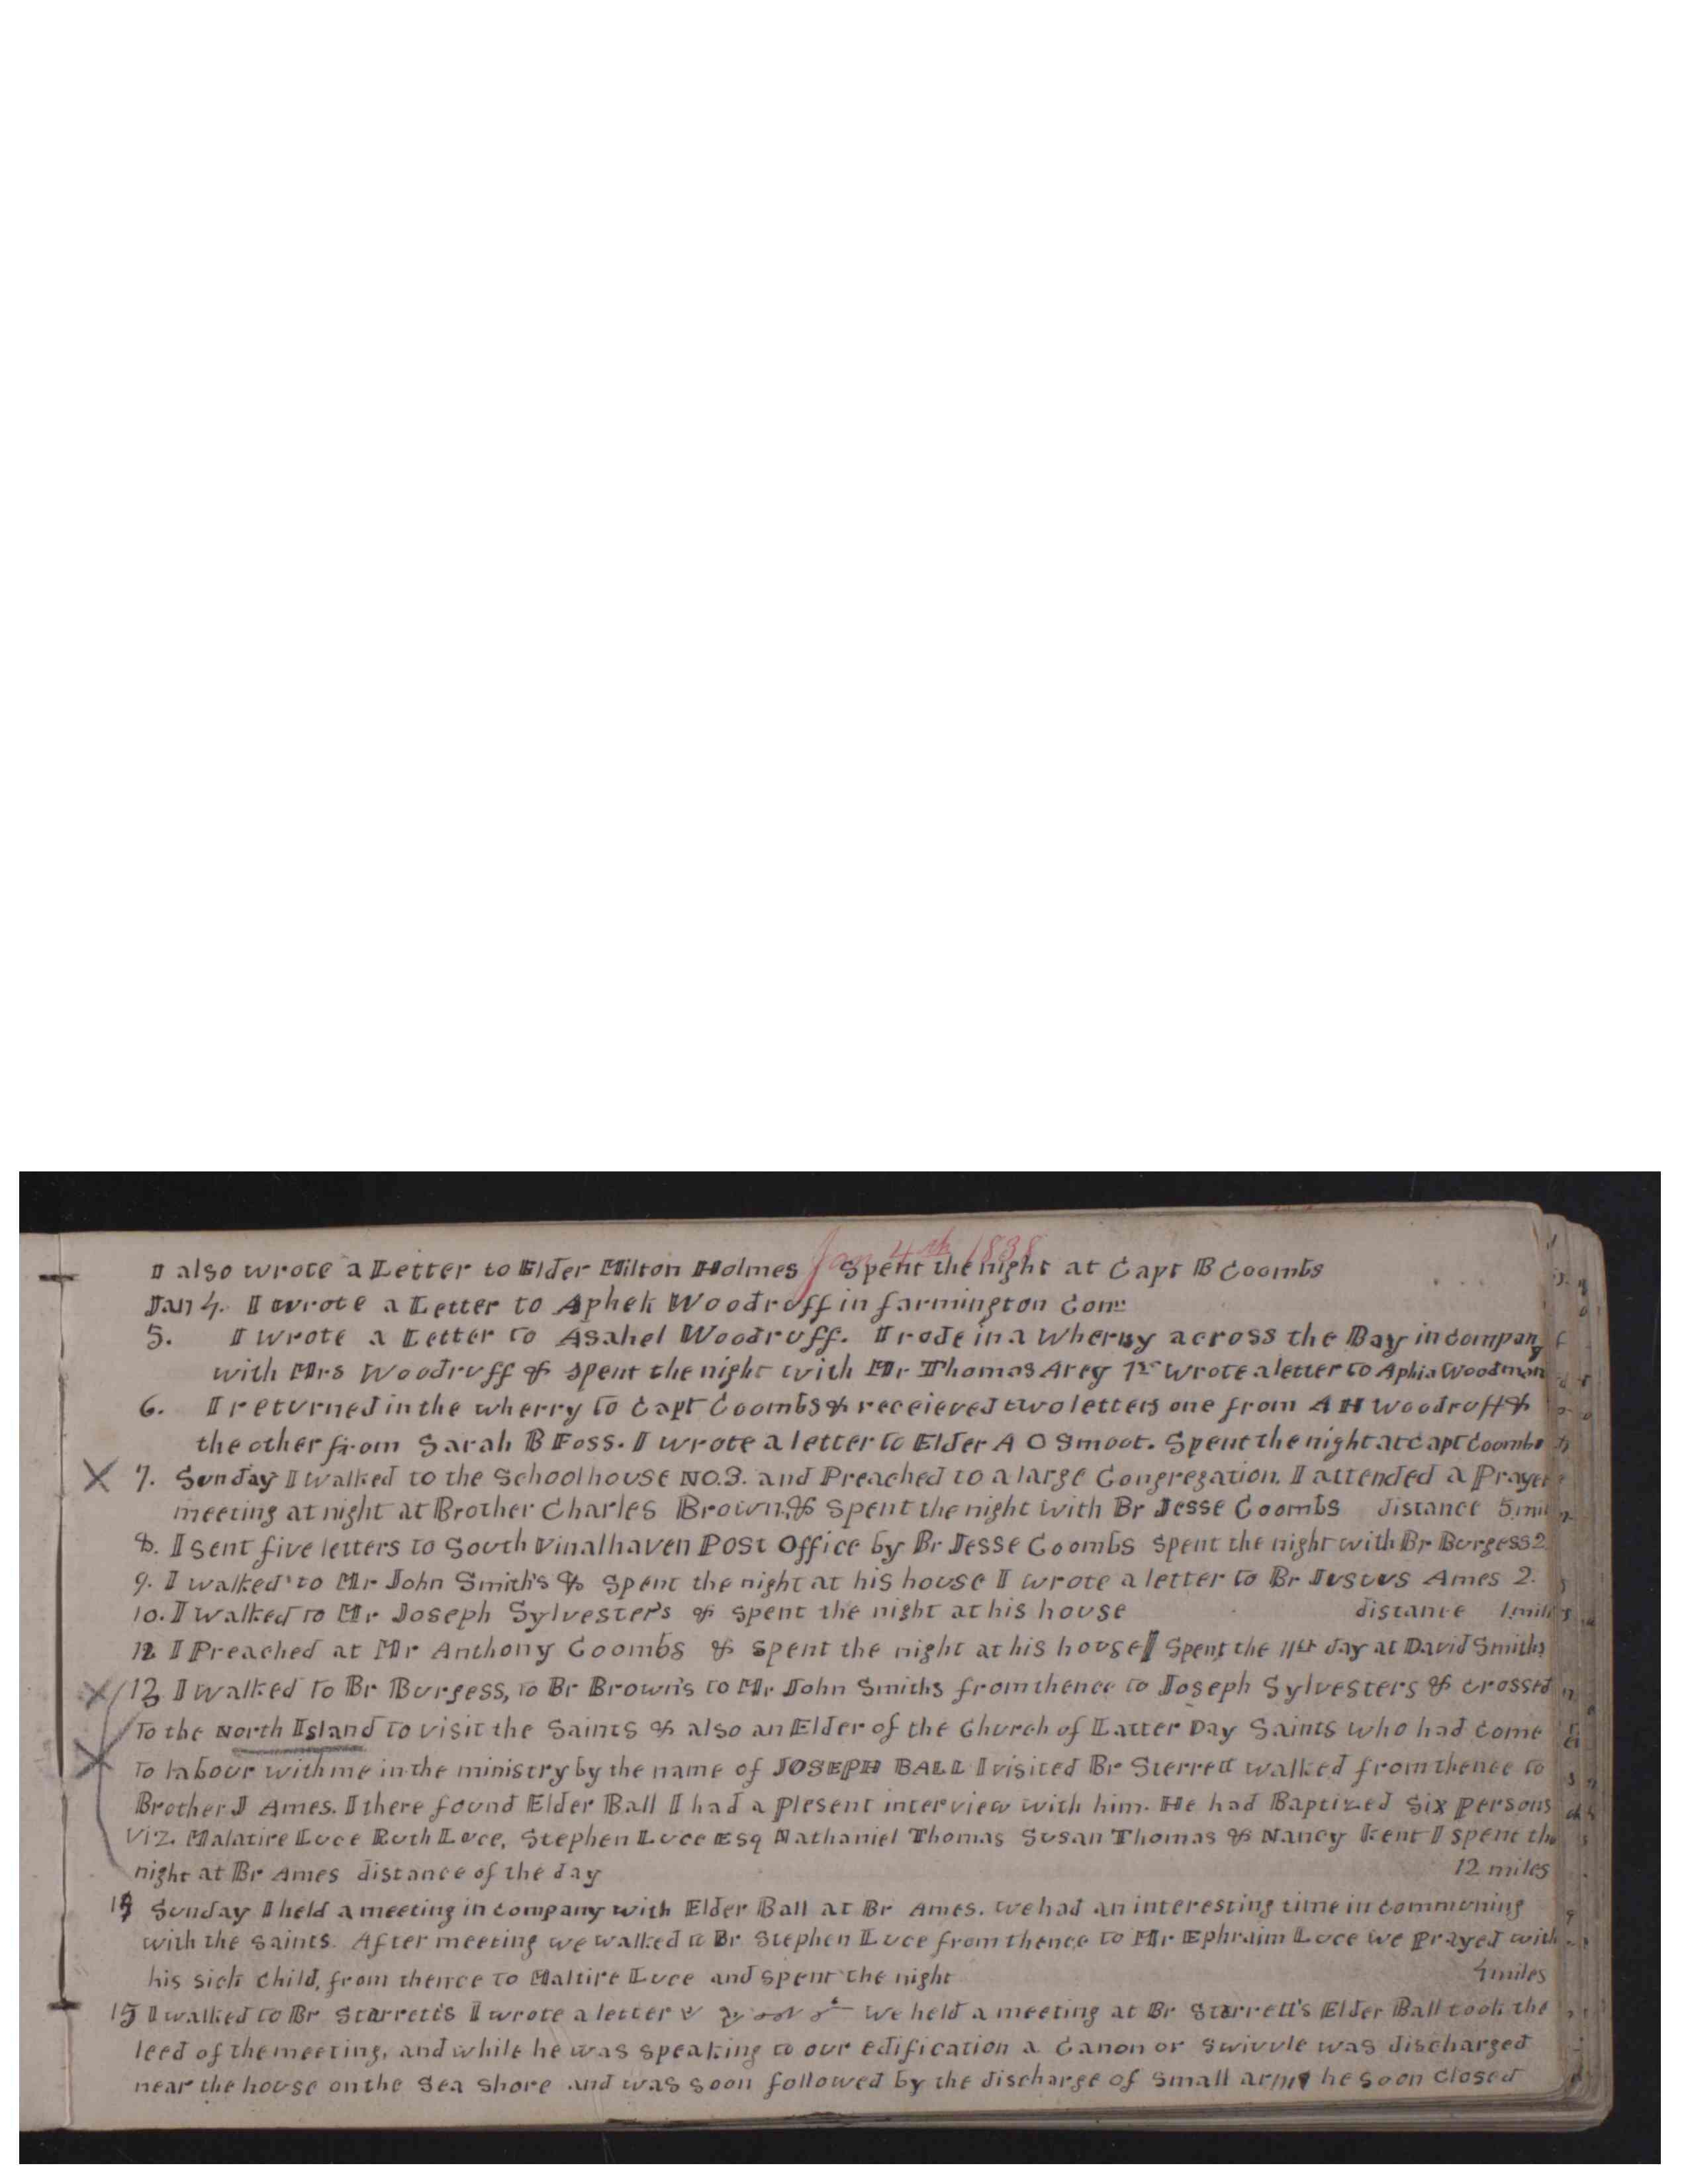 Jan 4th 1838
I also wrote a Letter to Elder Milton Holmes Spent the night at Capt B Coombs
Jan 4. I wrote a Letter to Aphek Woodruff in farmington Conn
5. I wrote a Letter to Asahel Woodruff. I rode in a wherry across the Bay in company
with Mrs Woodruff & spent the night with Mr Thomas Arey wrote a letter to Aphia Woodman
6. I returned in the wherry to Capt Coombs & receieved two letters one from A H Woodruff &
the other from Sarah B Foss. I wrote a letter to Elder A O Smoot. Spent the night at Capt Coombs
7. Sunday I walked to the Schoolhouse NO.3. and Preached to a large Congregation. I attended a Prayer
meeting at night at Brother Charles Brown, & spent the night with Br Jesse Coombs distance 5 mil
8. I sent five letters to South Vinalhaven Post Office by Br Jesse Coombs spent the night with Br Burgess 2
9. I walked to Mr John Smith's & spent the night at his house I wrote a letter to Br Justus Ames 2.
10. I walked to Mr Joseph Sylvester's & spent the night at his house distance 1 mile
12 I Preached at Mr Anthony Coombs & spent the night at his house Spent the 11th day at David Smiths
13 I walked to Br Burgess, to Br Brown's to Mr John Smiths from thence to Joseph Sylvesters & crossed
To the North Island to visit the Saints & also an Elder of the Church of Latter Day Saints who had come
To labour with me in the ministry by the name of JOSEPH BALL I visited Br Sterrett walked from thence to
Brother J Ames. I there found Elder Ball I had a plesent interview with him. He had Baptized Six persons
Viz. Malatire Luce Ruth Luce, Stephen Luce Esq Nathaniel Thomas Susan Thomas & Nancy Kent I spent the
night at Br Ames distance of the day 12 miles
14 Sunday I held a meeting in company with Elder Ball at Br Ames. we had an interesting time in communing
with the Saints. After meeting we walked to Br Stephen Luce from thence to Mr Ephraim Luce we prayed with
his sick child, from thence to Maltire Luce and spent the night 4 miles
15 I walked to Br Starretts I wrote a letter We held a meeting at Br Starrett's Elder Ball took the
leed of the meeting, and while he was speaking to our edification a Canon or swivvle was discharged
near the house on the Sea shore and was soon followed by the discharge of small arms he soon closed